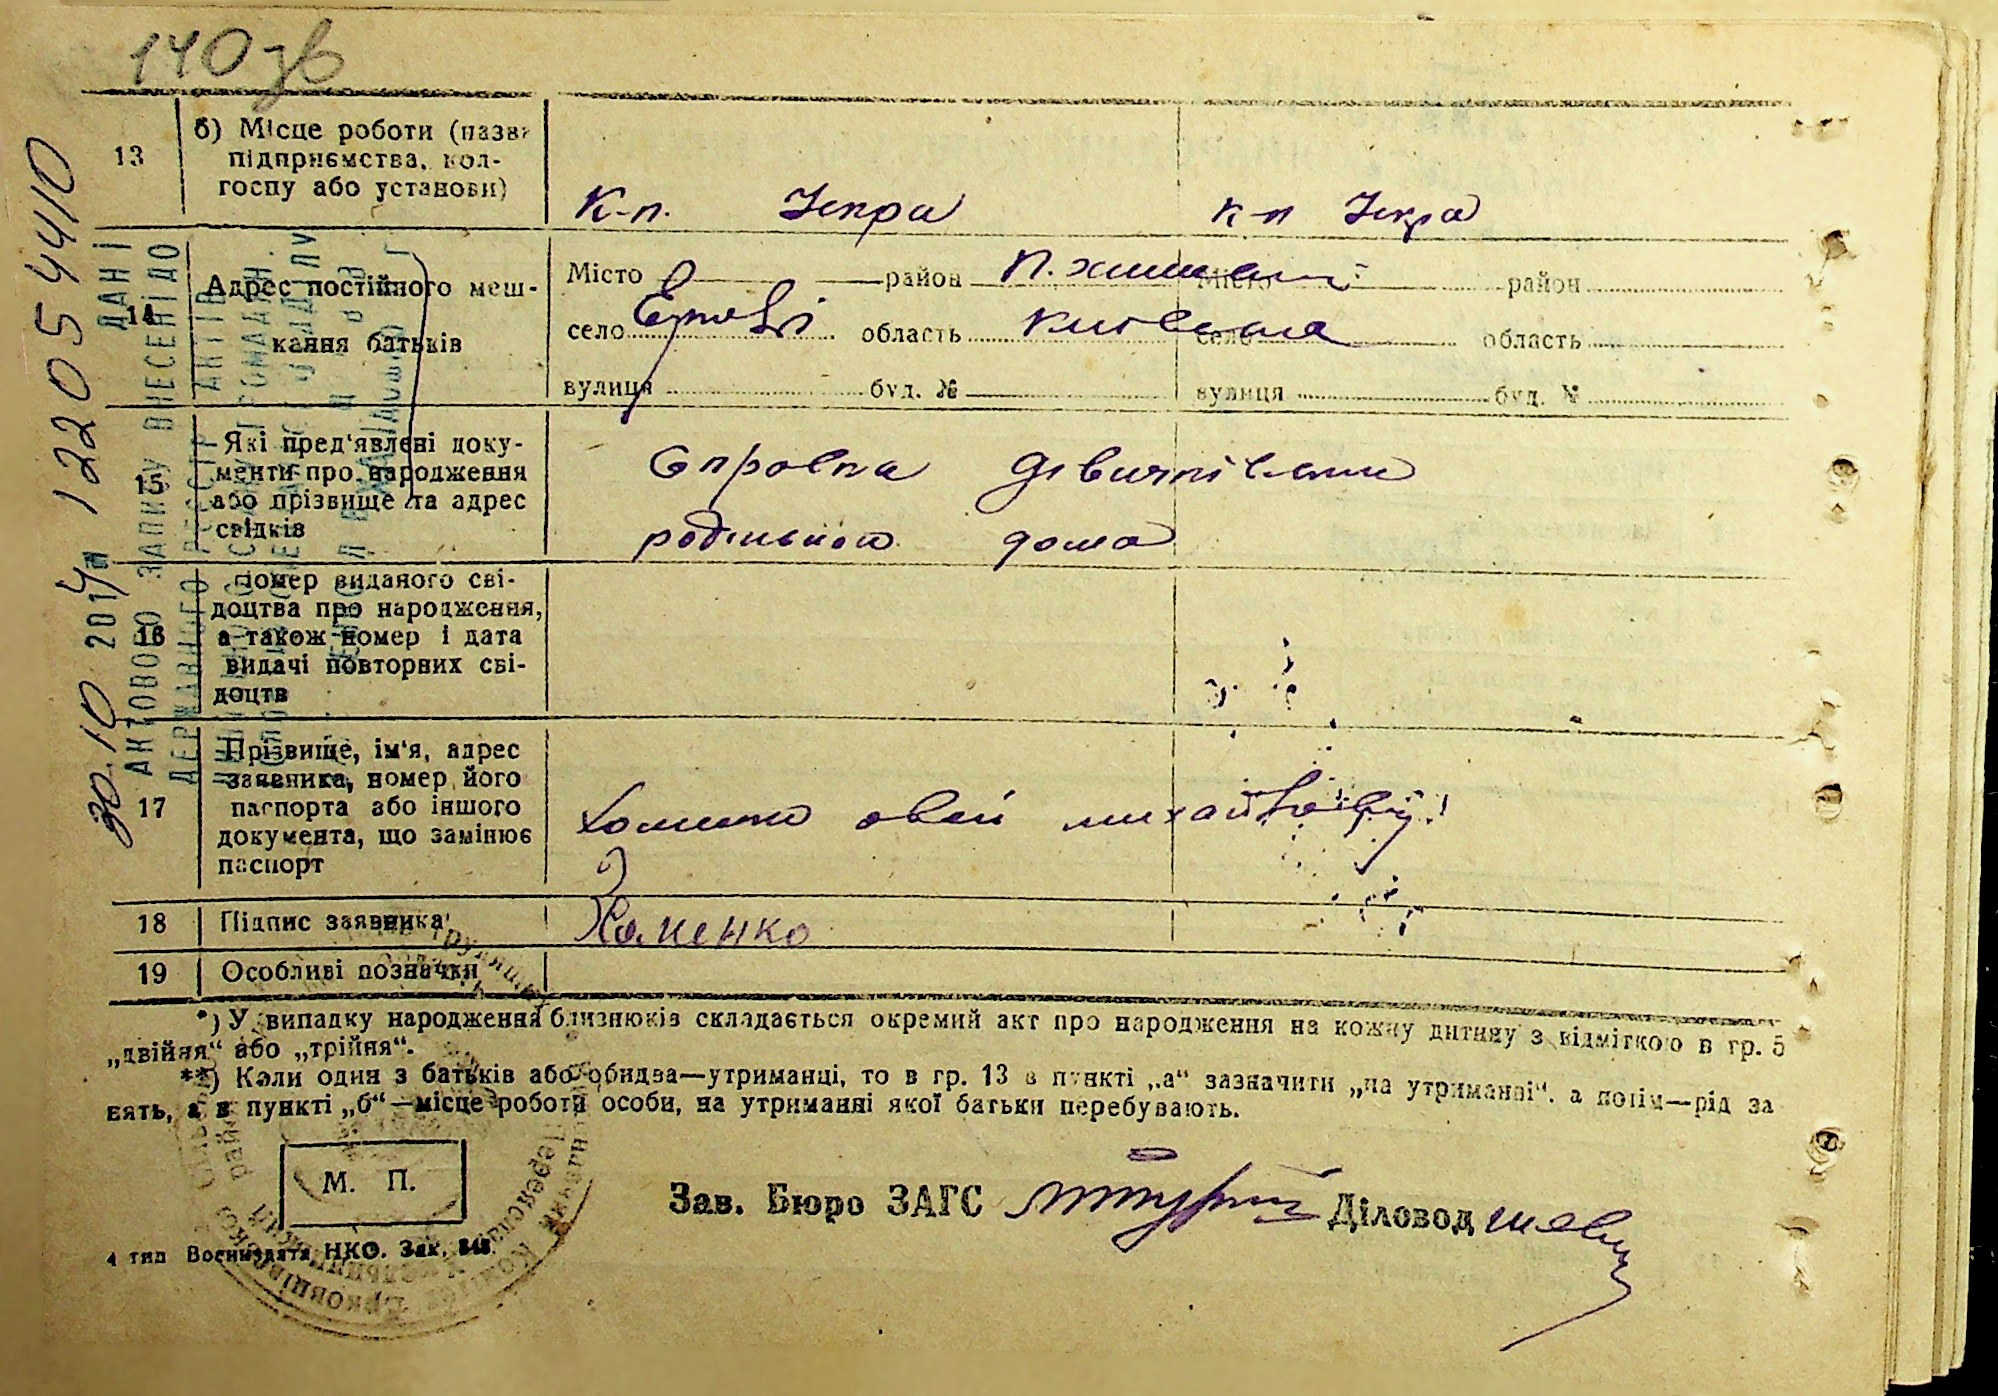 140 зв
13 б) Місце роботи (назва
підприємства, кол-
госпу або установи)
к-п. Іскра к-п Іскра
14 Адрес постійного меш-
кання батьків
Місто район П. Хмил Місто район
село область Київська село область
вулиця буд. № вулиця буд. №
15 Які пред'явлені доку-
менти про народження
або прізвище та адрес
свідків
Справка Дівички
родильного дома
16 номер виданого сві-
доцтва про народження,
а також номер і дата
видачі повторних сві-
доцтв
17 Прізвище, ім'я, адрес
заявника, номер його
паспорта або іншого
документа, що замінює
паспорт
Хоменко Овсій Михайлович
18 Підпис заявника
Хоменко
19 Особливі позначки
*) У випадку народження близнюків складається окремий акт про народження на кожну дитину з відміткою в гр. 5
„двійня“ або „трійня“.
**) Коли один з батьків або обидва—утриманці, то в гр. 13 в пункті „а“ зазначити „на утриманні“, а потім—рід за
нять, а в пункті „б“—місце роботи особи, на утриманні якої батьки перебувають.
М. П.
Зав. Бюро ЗАГС Діловод
4 тип Воениздата НКО. Зак. 848.
30.10 2014 122054410
ДАНІ
АКТОВОГО ЗАПИСУ ВНЕСЕНІ ДО
ДЕРЖАВНОГО РЕЄСТР АКТІВ